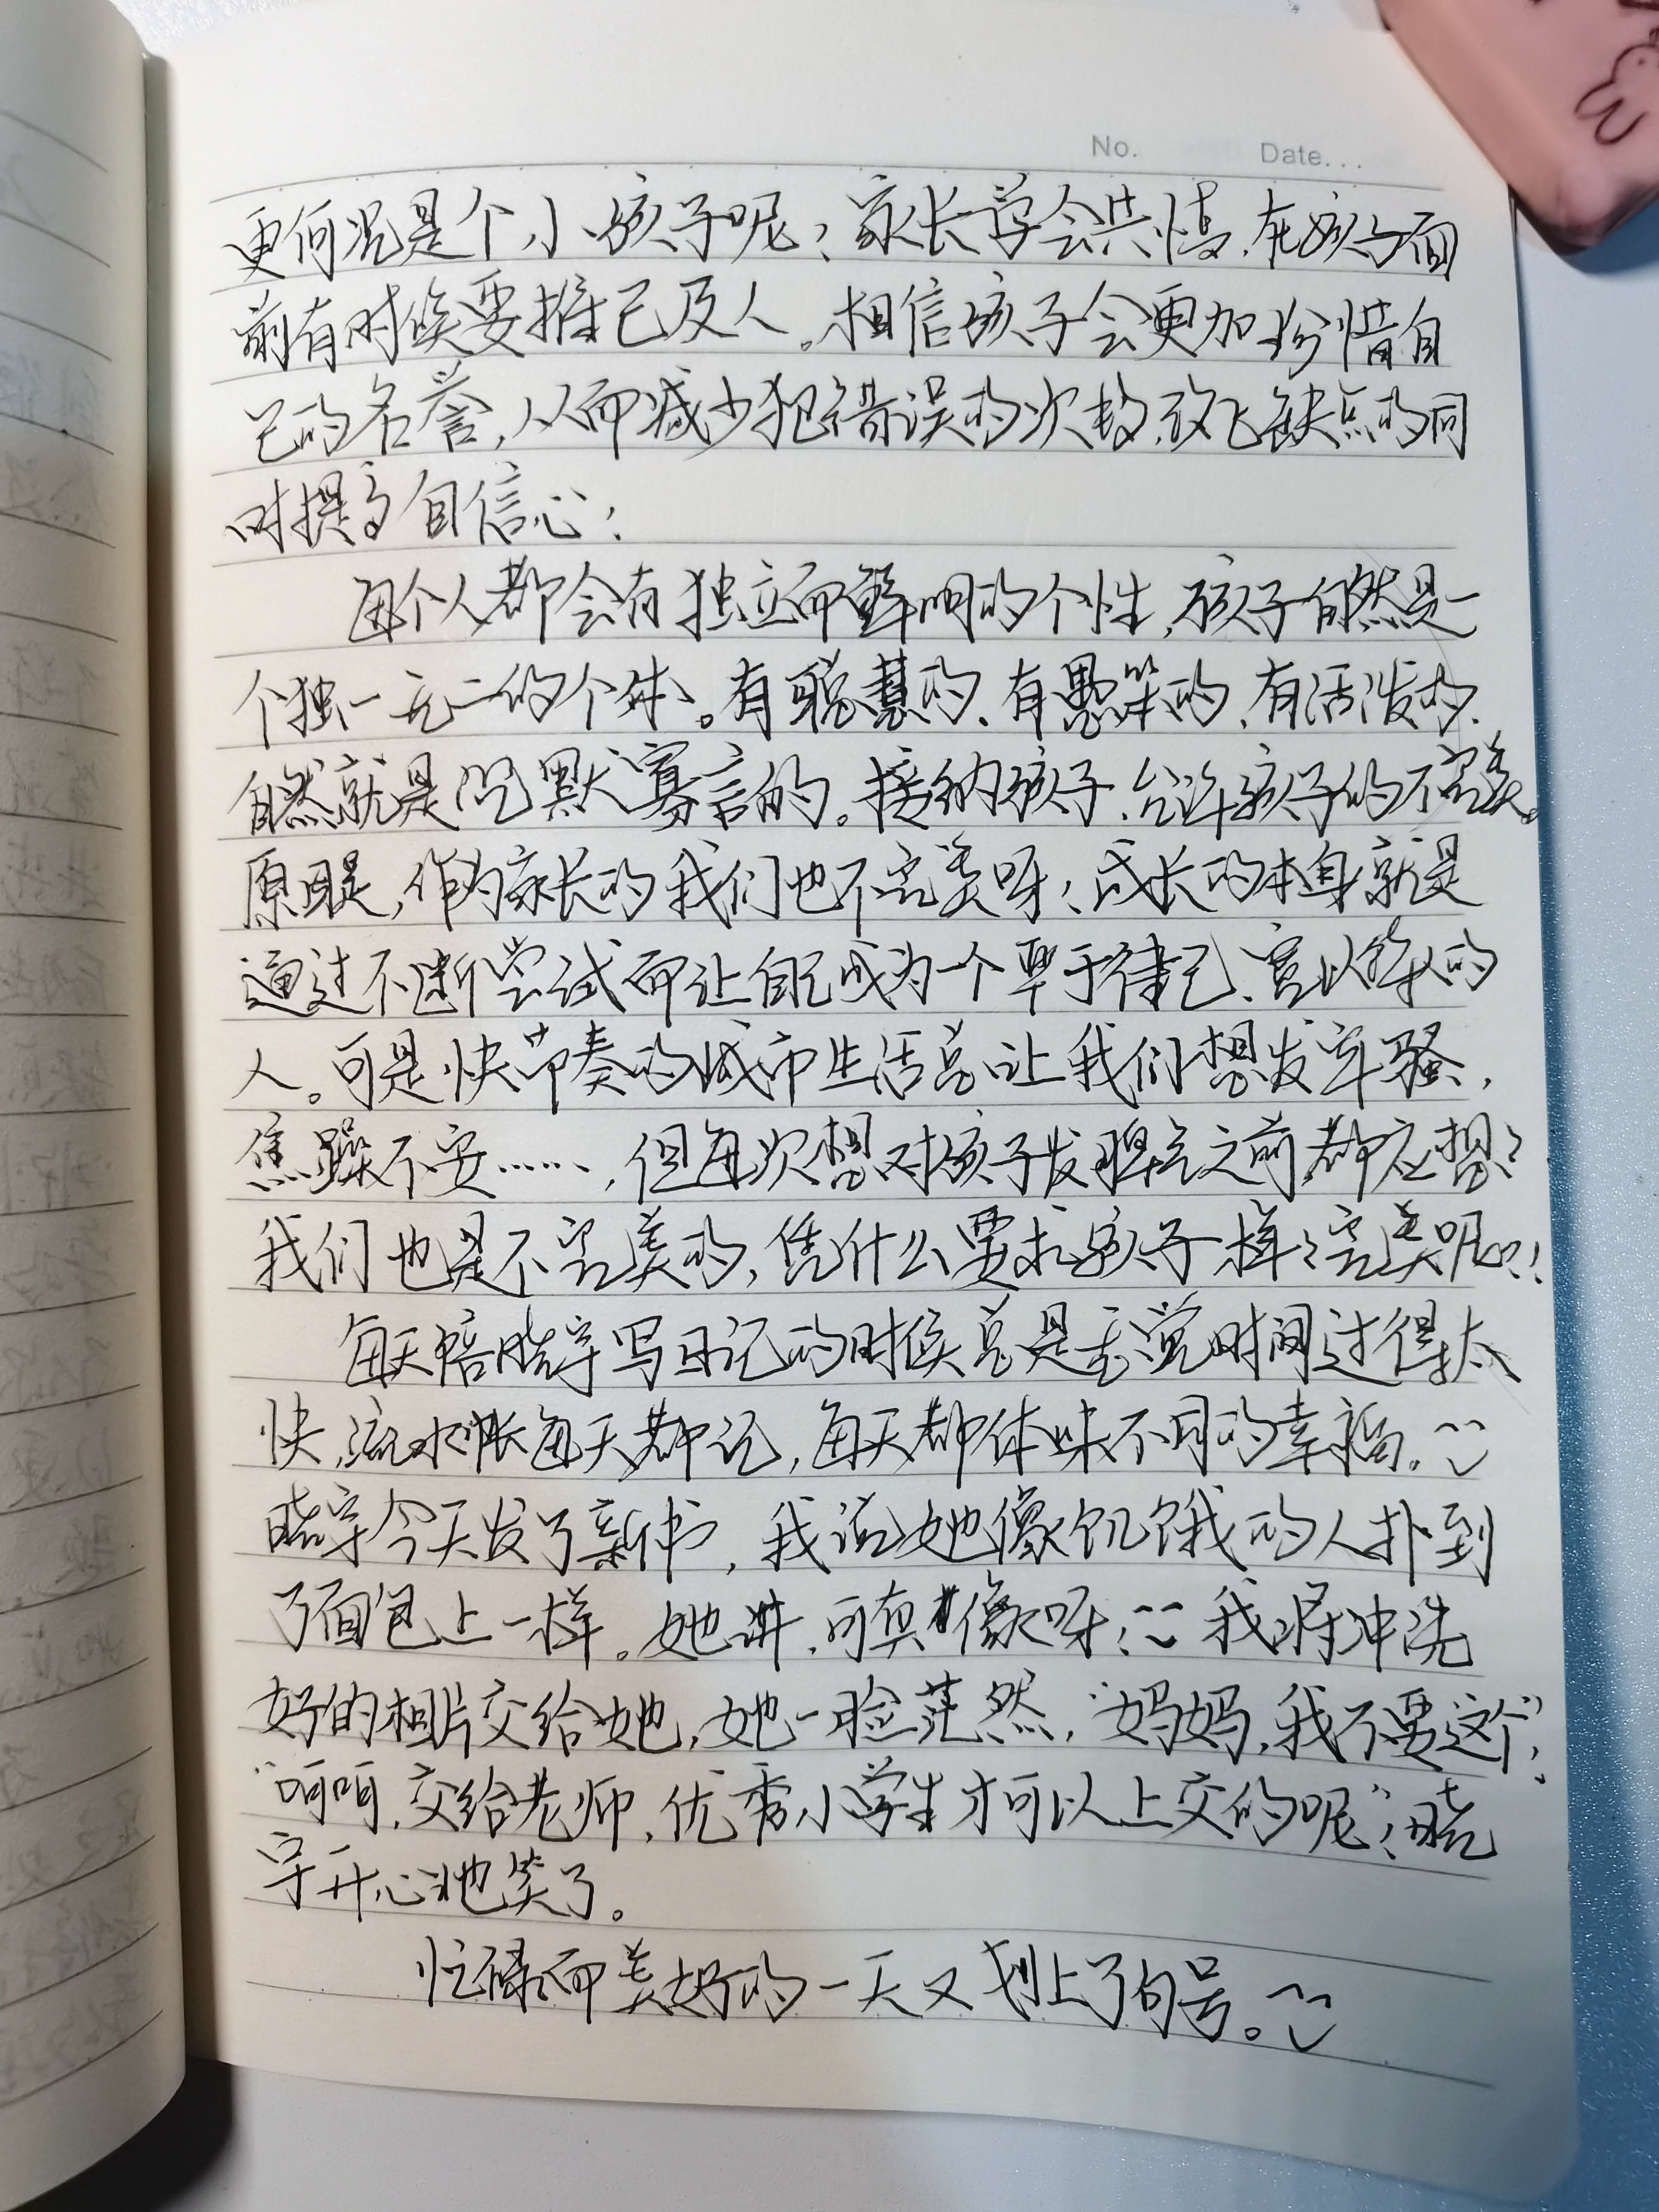 No. Date...
更何况是个小孩子呢！家长学会共情，在孩子面
前有时候要推己及人。相信孩子会更加珍惜自
己的名誉，从而减少犯错误的次数，放飞缺点的同
时提高自信心！
每个人都会有独立而鲜明的个性，孩子自然是一
个独一无二的个体。有聪慧的、有愚笨的、有活泼的、
自然就是沉默寡言的。接纳孩子，允许孩子的不完美。
原因是，作为家长的我们也不完美呀！成长的本身就是
通过不断尝试而让自己成为一个严于律己、宽以待人的
人。可是快节奏的城市生活总让我们想发牢骚，
焦躁不安……，但每次想对孩子发脾气之前都应想：
我们也是不完美的，凭什么要求孩子样样完美呢？！
每天陪晓宇写日记的时候总是感觉时间过得太
快，流水账每天都记，每天都体味不同的幸福。
晓宇今天发了新书，我说她像饥饿的人扑到
了面包上一样。她讲，可真像呀！我将冲洗
好的相片交给她，她一脸茫然，“妈妈，我不要这个”，
“呵呵，交给老师，优秀小学生才可以上交的呢”！晓
宇开心地笑了。
忙碌而美好的一天又划上了句号。